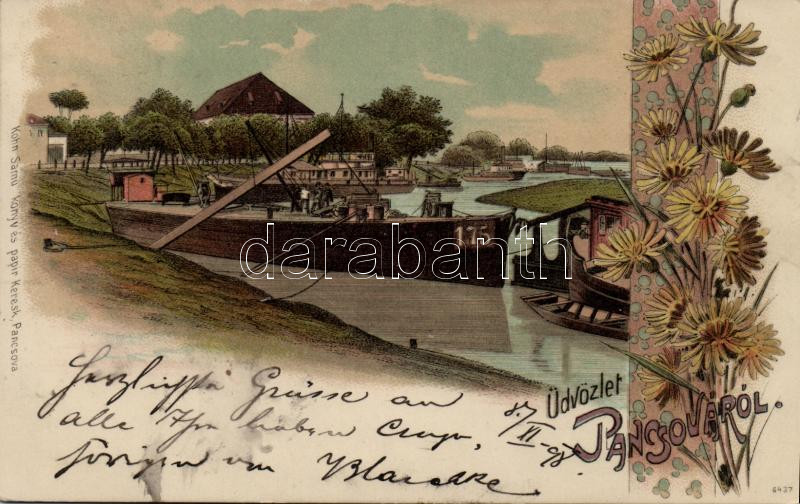 Kohn Samu könyv és papir Keresk, Pancsova
175
darabanth
Üdvözlet
PANCSOVÁRÓL.
Herzlichste Grüsse an
alle Ihre lieben
von Blaschke
6437